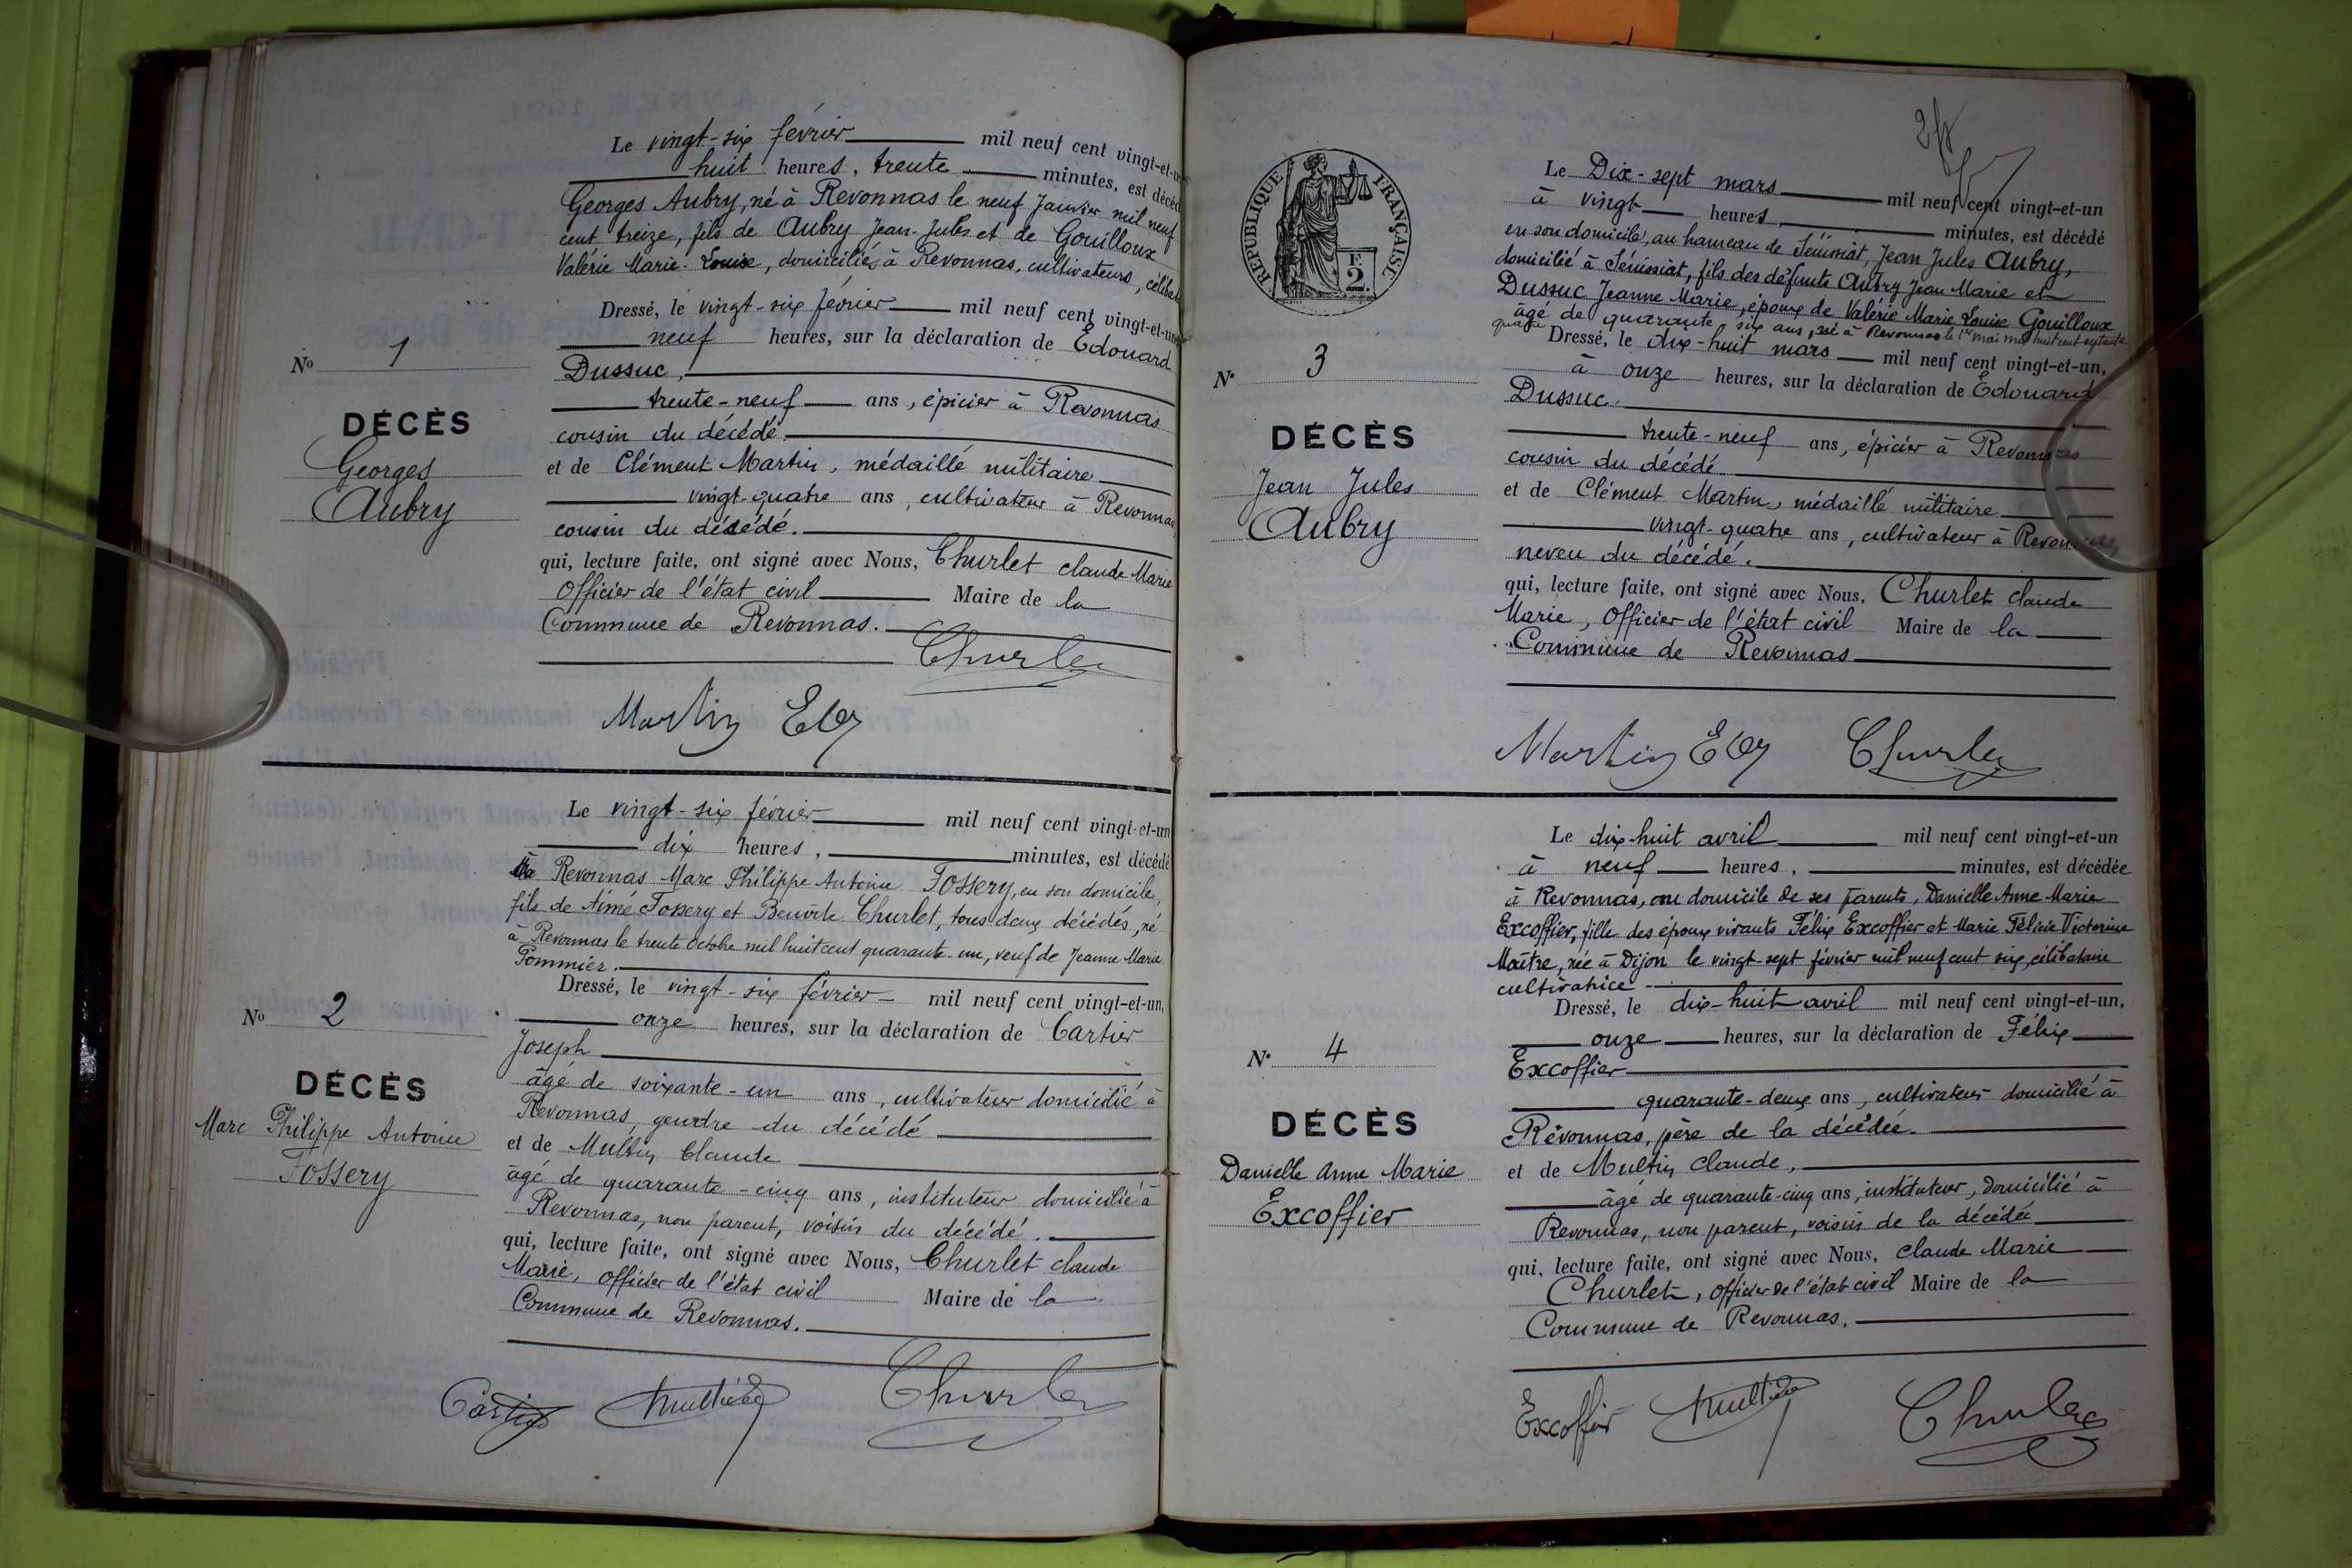 Le vingt-six février mil neuf cent vingt-et-un
huit heures, trente minutes, est décédé
Georges Aubry, né à Revonnas le neuf Janvier mil neuf
cent treize, fils de Aubry Jean-Jules et de Gouilloux
Valérie Marie-Louise, domiciliés à Revonnas, cultivateurs,
Dressé, le vingt-six février mil neuf cent vingt-et-un
neuf heures, sur la déclaration de Edouard
Dussuc,
trente-neuf ans, épicier à Revonnas
cousin du décédé
et de Clément Martin, médaillé militaire
vingt-quatre ans, cultivateur à Revonnas
cousin du décédé.
qui, lecture faite, ont signé avec Nous, Churlet claude Marie
Officier de l'état civil Maire de la
Commune de Revonnas.
Churlet
Martin
No 1
DÉCÈS
Georges
Aubry
Le vingt-six février mil neuf cent vingt-et-un
dix heures, minutes, est décédé
à Revonnas Marc Philippe Antoine Fossery, en son domicile,
fils de Aimé Fossery et Benoîte Churlet, tous deux décédés, né
à Revonnas le trente Octobre mil huit cent quarante-un, veuf de Jeanne Marie
Pommier.
Dressé, le vingt-six février mil neuf cent vingt-et-un,
onze heures, sur la déclaration de Cartier
Joseph
âgé de soixante-un ans, cultivateur domicilié à
Revonnas, gendre du décédé
et de Multin Claude
âgé de quarante-cinq ans, instituteur domicilié à
Revonnas, non parent, voisin du décédé.
qui, lecture faite, ont signé avec Nous, Churlet claude
Marie, officier de l'état civil Maire de la
Commune de Revonnas.
Cartier Multin Churlet
No 2
DÉCÈS
Marc Philippe Antoine
Fossery
RÉPUBLIQUE FRANÇAISE
F.
2.
Le Dix-sept mars mil neuf cent vingt-et-un
à vingt heures, minutes, est décédé
en son domicile, au hameau de Sénissiat, Jean Jules Aubry,
domicilié à Sénissiat, fils des défunts Aubry Jean Marie et
Dussuc Jeanne Marie, époux de Valérie Marie Louise Gouilloux
âgé de quarante six ans, né à Revonnas le 1er mai mil huit cent septante
quatre
Dressé, le dix-huit mars mil neuf cent vingt-et-un,
à onze heures, sur la déclaration de Edouard
Dussuc.
trente-neuf ans, épicier à Revonnas
cousin du décédé
et de Clément Martin, médaillé militaire
vingt-quatre ans, cultivateur à Revonnas
neveu du décédé.
qui, lecture faite, ont signé avec Nous, Churlet claude
Marie, Officier de l'état civil Maire de la
Commune de Revonnas
Martin Churlet
N° 3
DÉCÈS
Jean Jules
Aubry
Le dix-huit avril mil neuf cent vingt-et-un
à neuf heures, minutes, est décédée
à Revonnas, au domicile de ses parents, Danielle Anne Marie
Excoffier, fille des époux vivants Félix Excoffier et Marie Félicie Victorine
Maître, née à Dijon le vingt-sept février mil neuf cent six, célibataire
cultivatrice
Dressé, le dix-huit avril mil neuf cent vingt-et-un,
onze heures, sur la déclaration de Félix
Excoffier
quarante-deux ans, cultivateur domicilié à
Revonnas, père de la décédée.
et de Multin claude,
âgé de quarante-cinq ans, instituteur, domicilié à
Revonnas, non parent, voisin de la décédée
qui, lecture faite, ont signé avec Nous, claude Marie
Churlet, officier de l'état civil Maire de la
Commune de Revonnas.
Excoffier Multin Churlet
N° 4
DÉCÈS
Danielle Anne Marie
Excoffier